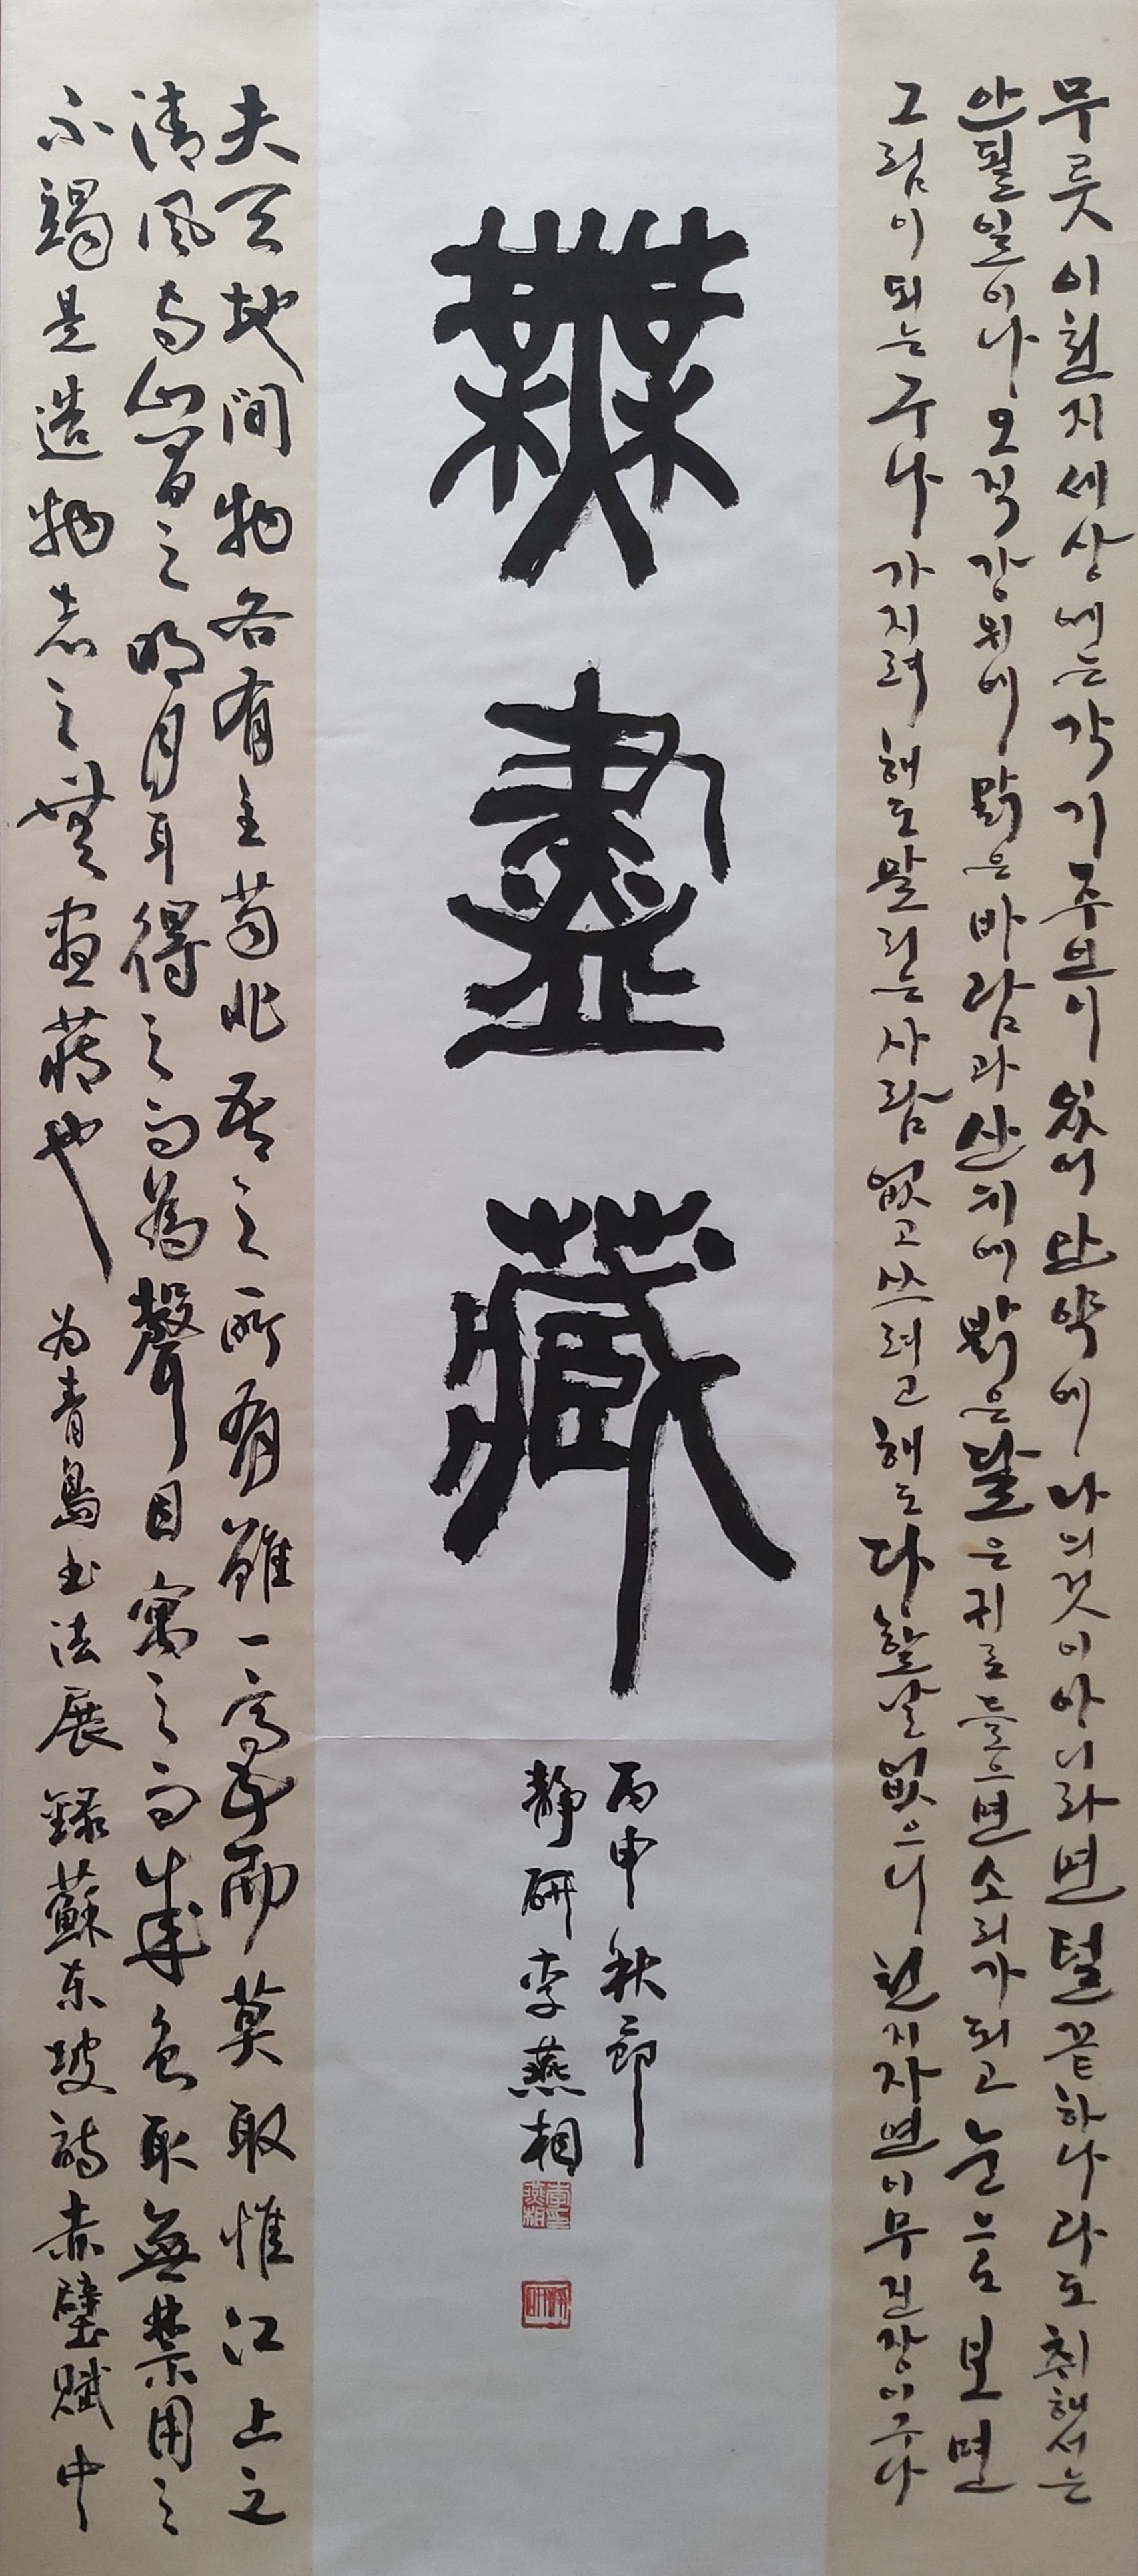 무릇 이 천지 세상에는 각기 주인이 있어 만약에 나의 것이 아니라면 털끝 하나라도 취해서는
안 될 일이나 오직 강 위에 맑은 바람과 산 위에 밝은 달은 귀로 들으면 소리가 되고 눈으로 보면
그림이 되는구나 가지려 해도 말리는 사람 없고 쓰려고 해도 다 할 날 없으니 천지자연이 무진장이구나
無盡藏
丙申秋節
靜研李燕相
夫天地間物各有主苟非吾之所有雖一毫而莫取惟江上之
清風與山間之明月耳得之而為聲目寓之而成色取無禁用之
不竭是造物者之無盡藏也 为青鳥書法展 錄蘇東坡詩赤壁賦中